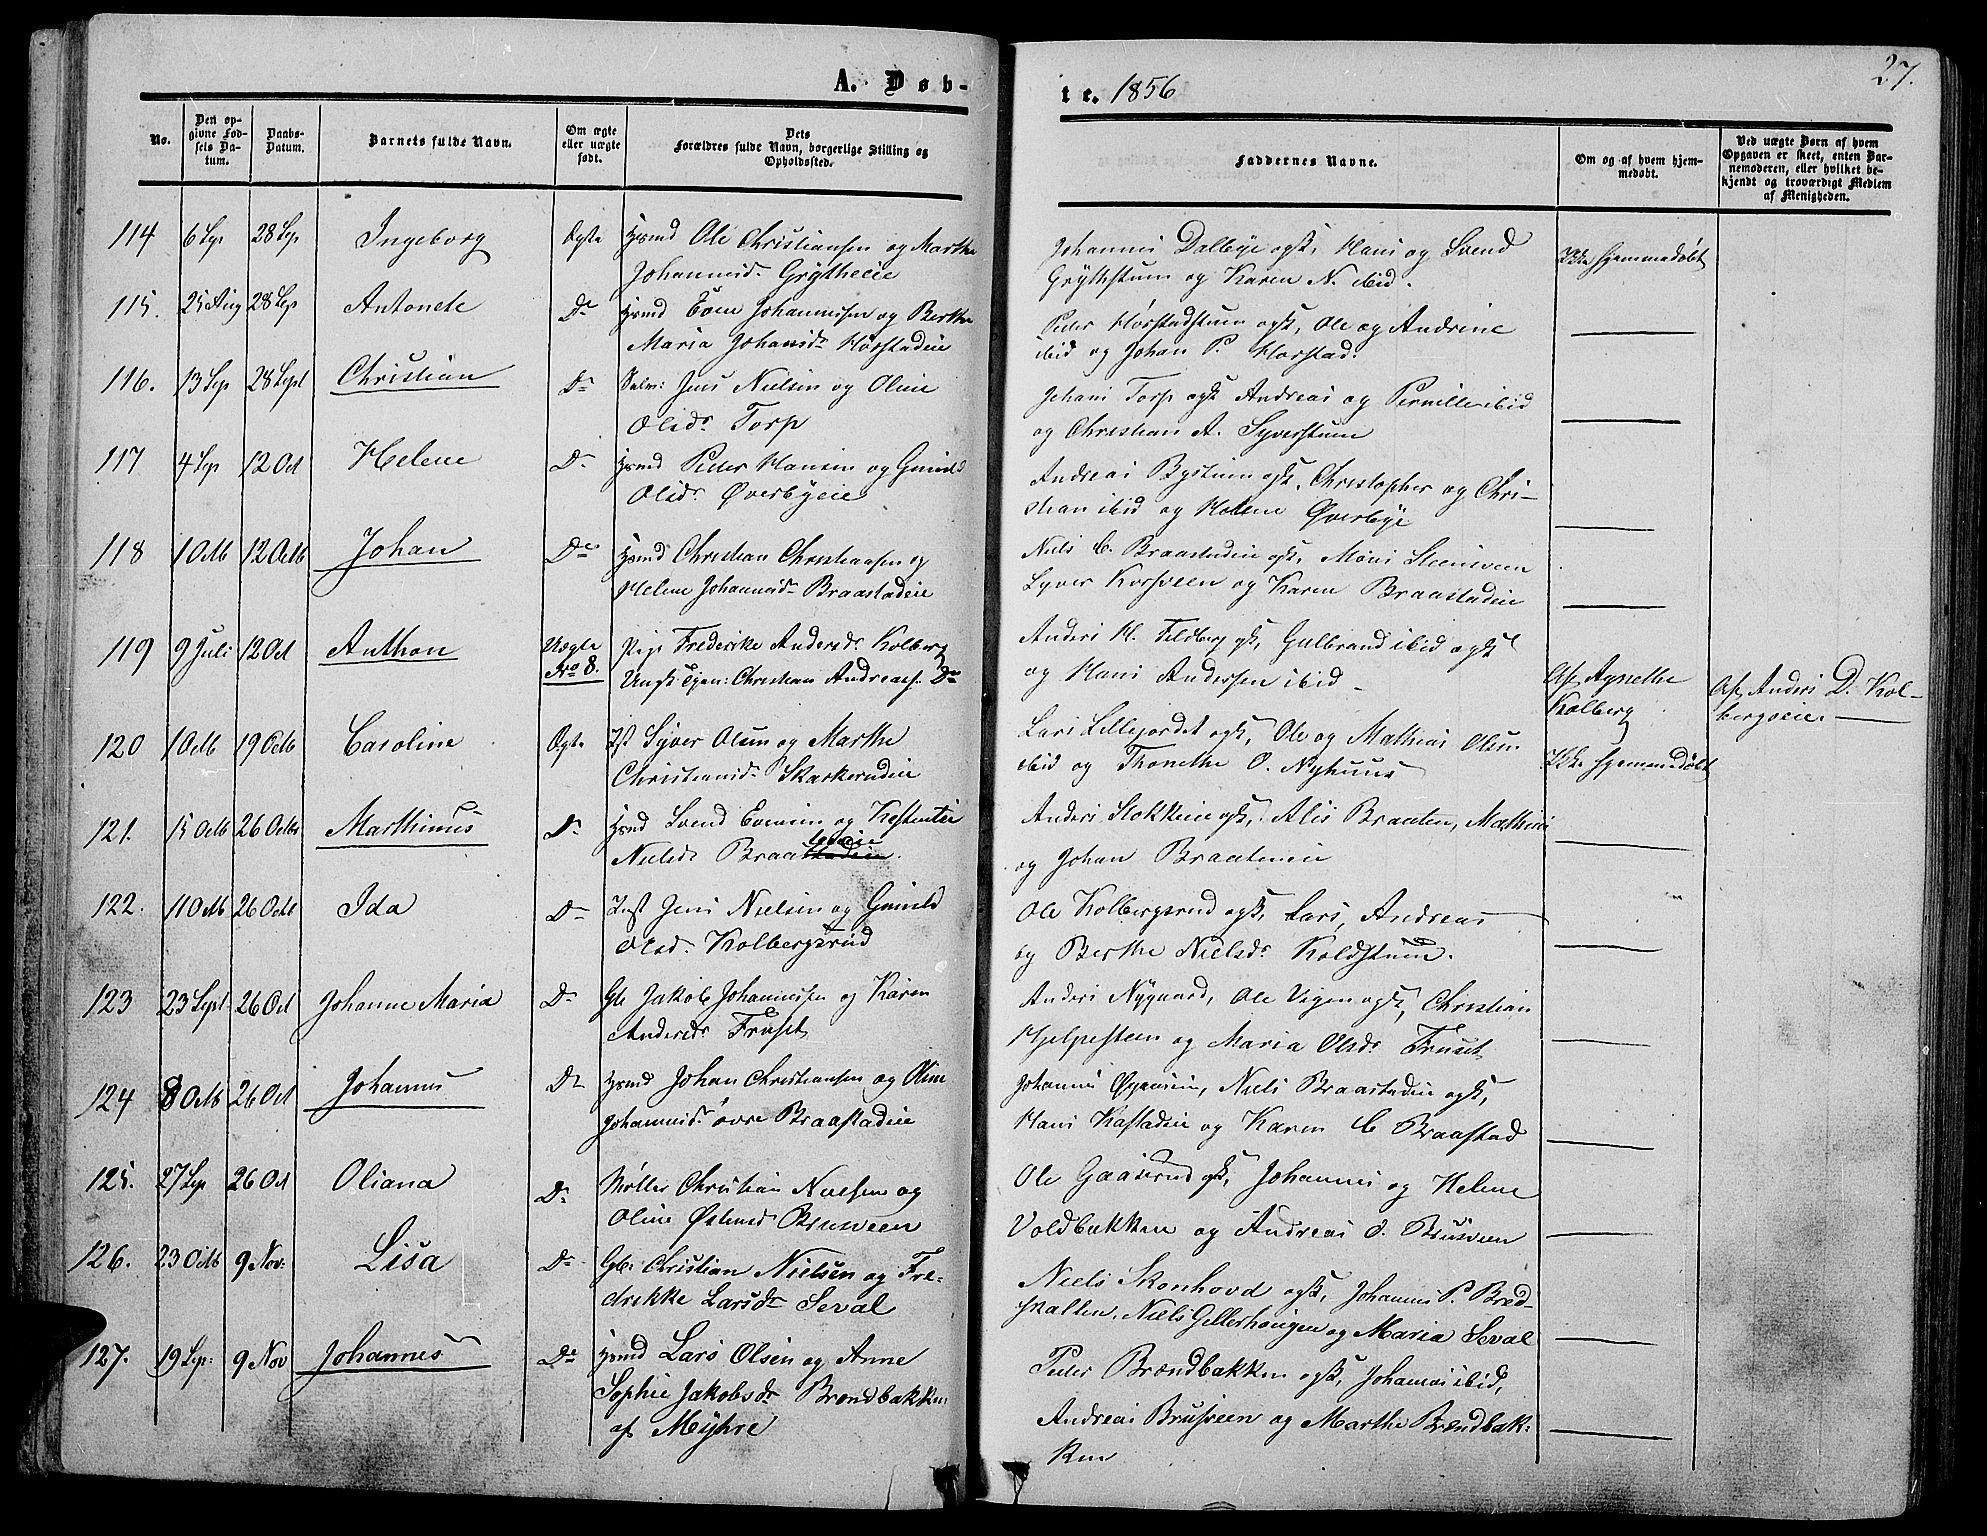 A. Døb-
te. 1856
27.
No.
Den op-
givne Fød-
sels Da-
tum.
Daabs-
Datum.
Barnets fulde Navn.
Om ægte
eller uægte
født.
Dets
Forældres fulde Navn, borgerlige Stilling og
Opholdssted.
Faddernes Navne.
Om og af hvem hjem-
medøbt.
Ved uægte Børn af hvem
Opgaven er skeet, enten Bar-
nemoderen, eller hvilket be-
kjendt og troværdigt Medlem
af Menigheden.
114 6 Sep 28 Sep Ingeborg Ægte Hsmd Ole Christiansen og Marthe
Johannesd. Grytheeie
Johannes Dalbye ogsk, Hans og Svend
Grythstuen og Karen N. ibid.
Ikke hjemmedøbt
115. 25 Aug 28 Sep Antonete Do Hsmd Even Johannessen og Berthe
Maria Johansdr Horstadeie
Peder Horstadstuen ogsk, Ole og Andrine
ibid og Johan P. Horstad.
116. 13 Sep 28 Sept Christian Do Selv: Jens Nielsen og Oline
Olsdr Torp
Johans Torp ogsk Andreas og Pernille ibid
og Christian A. Syverstuen
117 4 Sep 12 Oct Helene Do Hsmd Peder Hansen og Gunild
Olsdr Øverbyeie
Andreas Bystuen ogsk, Christopher og Chri-
stian ibid og Helene Øverbye
118 1 Octb 12 Octb Johan Do Hsmd Christian Christiansen og
Helene Johannesd. Braastadeie
Niels C. Braastadeie ogsk, Møns Steensveen
Syver Korsveen og Karen Braastadeie
119 9 Juli 12 Oct Anthon Uægte
No 8.
Pige Frederike Andersdr Kolberg
Ungk. Tjen: Christian Andreass. Do
Anders H. Feldberg ogsk, Gulbrand ibid ogsk
og Hans Andersen ibid
Af Agnethe
Kolberg
Af Anders D. Kol-
bergseie.
120 1 Octb 19 Octb Caroline Ægte Ist Syver Olsen og Marthe
Christiansdr Skarkerudeie
Lars Lillejordet ogsk, Ole og Mathias Olsen
ibid og Thonethe O. Nyhuus
Ikke hjemmedøbt
121. 15 Octb 26 Octbr Marthinus Do Hsmd Svend Evensen og
Nielsd Braateneie
Anders Stokkeie ogsk, Alis Braaten, Mathias
og Johan Braateneie
122. 11 Octb 26 Octb Ida Do Inst Jens Nielsen og Gunild
Olsd. Kolbergsrud
Ole Kolbergsrud ogsk, Lars, Andreas
og Berthe Nielsdr Koldstuen.
123 23 Sept 26 Oct Johanne Maria Do Gb Jakob Johannessen og Karen
Andersdr Fruset
Anders Nygaard, Ole Vigen ogsk, Christian
Hjelpesteen og Maria Olsdr Fruset
124 8 Octb 26 Oct Johannes Do Hsmd Johan Christiansen og Oline
Johannesdr øvre Braastadeie
Johannes, Niels Braastadeie ogsk,
Hans Kastadeie og Karen C Braastad
125. 27 Sep 26 Oct Oliana Do Møller Christian Nielsen og
Oline Østensd Brusveen
Ole Gaaserud ogsk, Johannes og Helene
Voldbakken og Andreas O. Brusveen
126. 23 Octb 9 Nov: Lisa Do Gb: Christian Nielsen og Fre-
drikke Larsdr Seval
Niels Skonhovd ogsk, Johannes P. Bred-
skallen, Niels Gellerhaugen og Maria Seval
127. 19 Sep: 9 Nov Johannes Do Hsmd Lars Olsen og Anne
Sophie Jakobsdr Brændbakken
af Mÿhre
Peder Brændbakken ogsk, Johannes ibid,
Andreas Brusveen og Marthe Brændbak-
ken